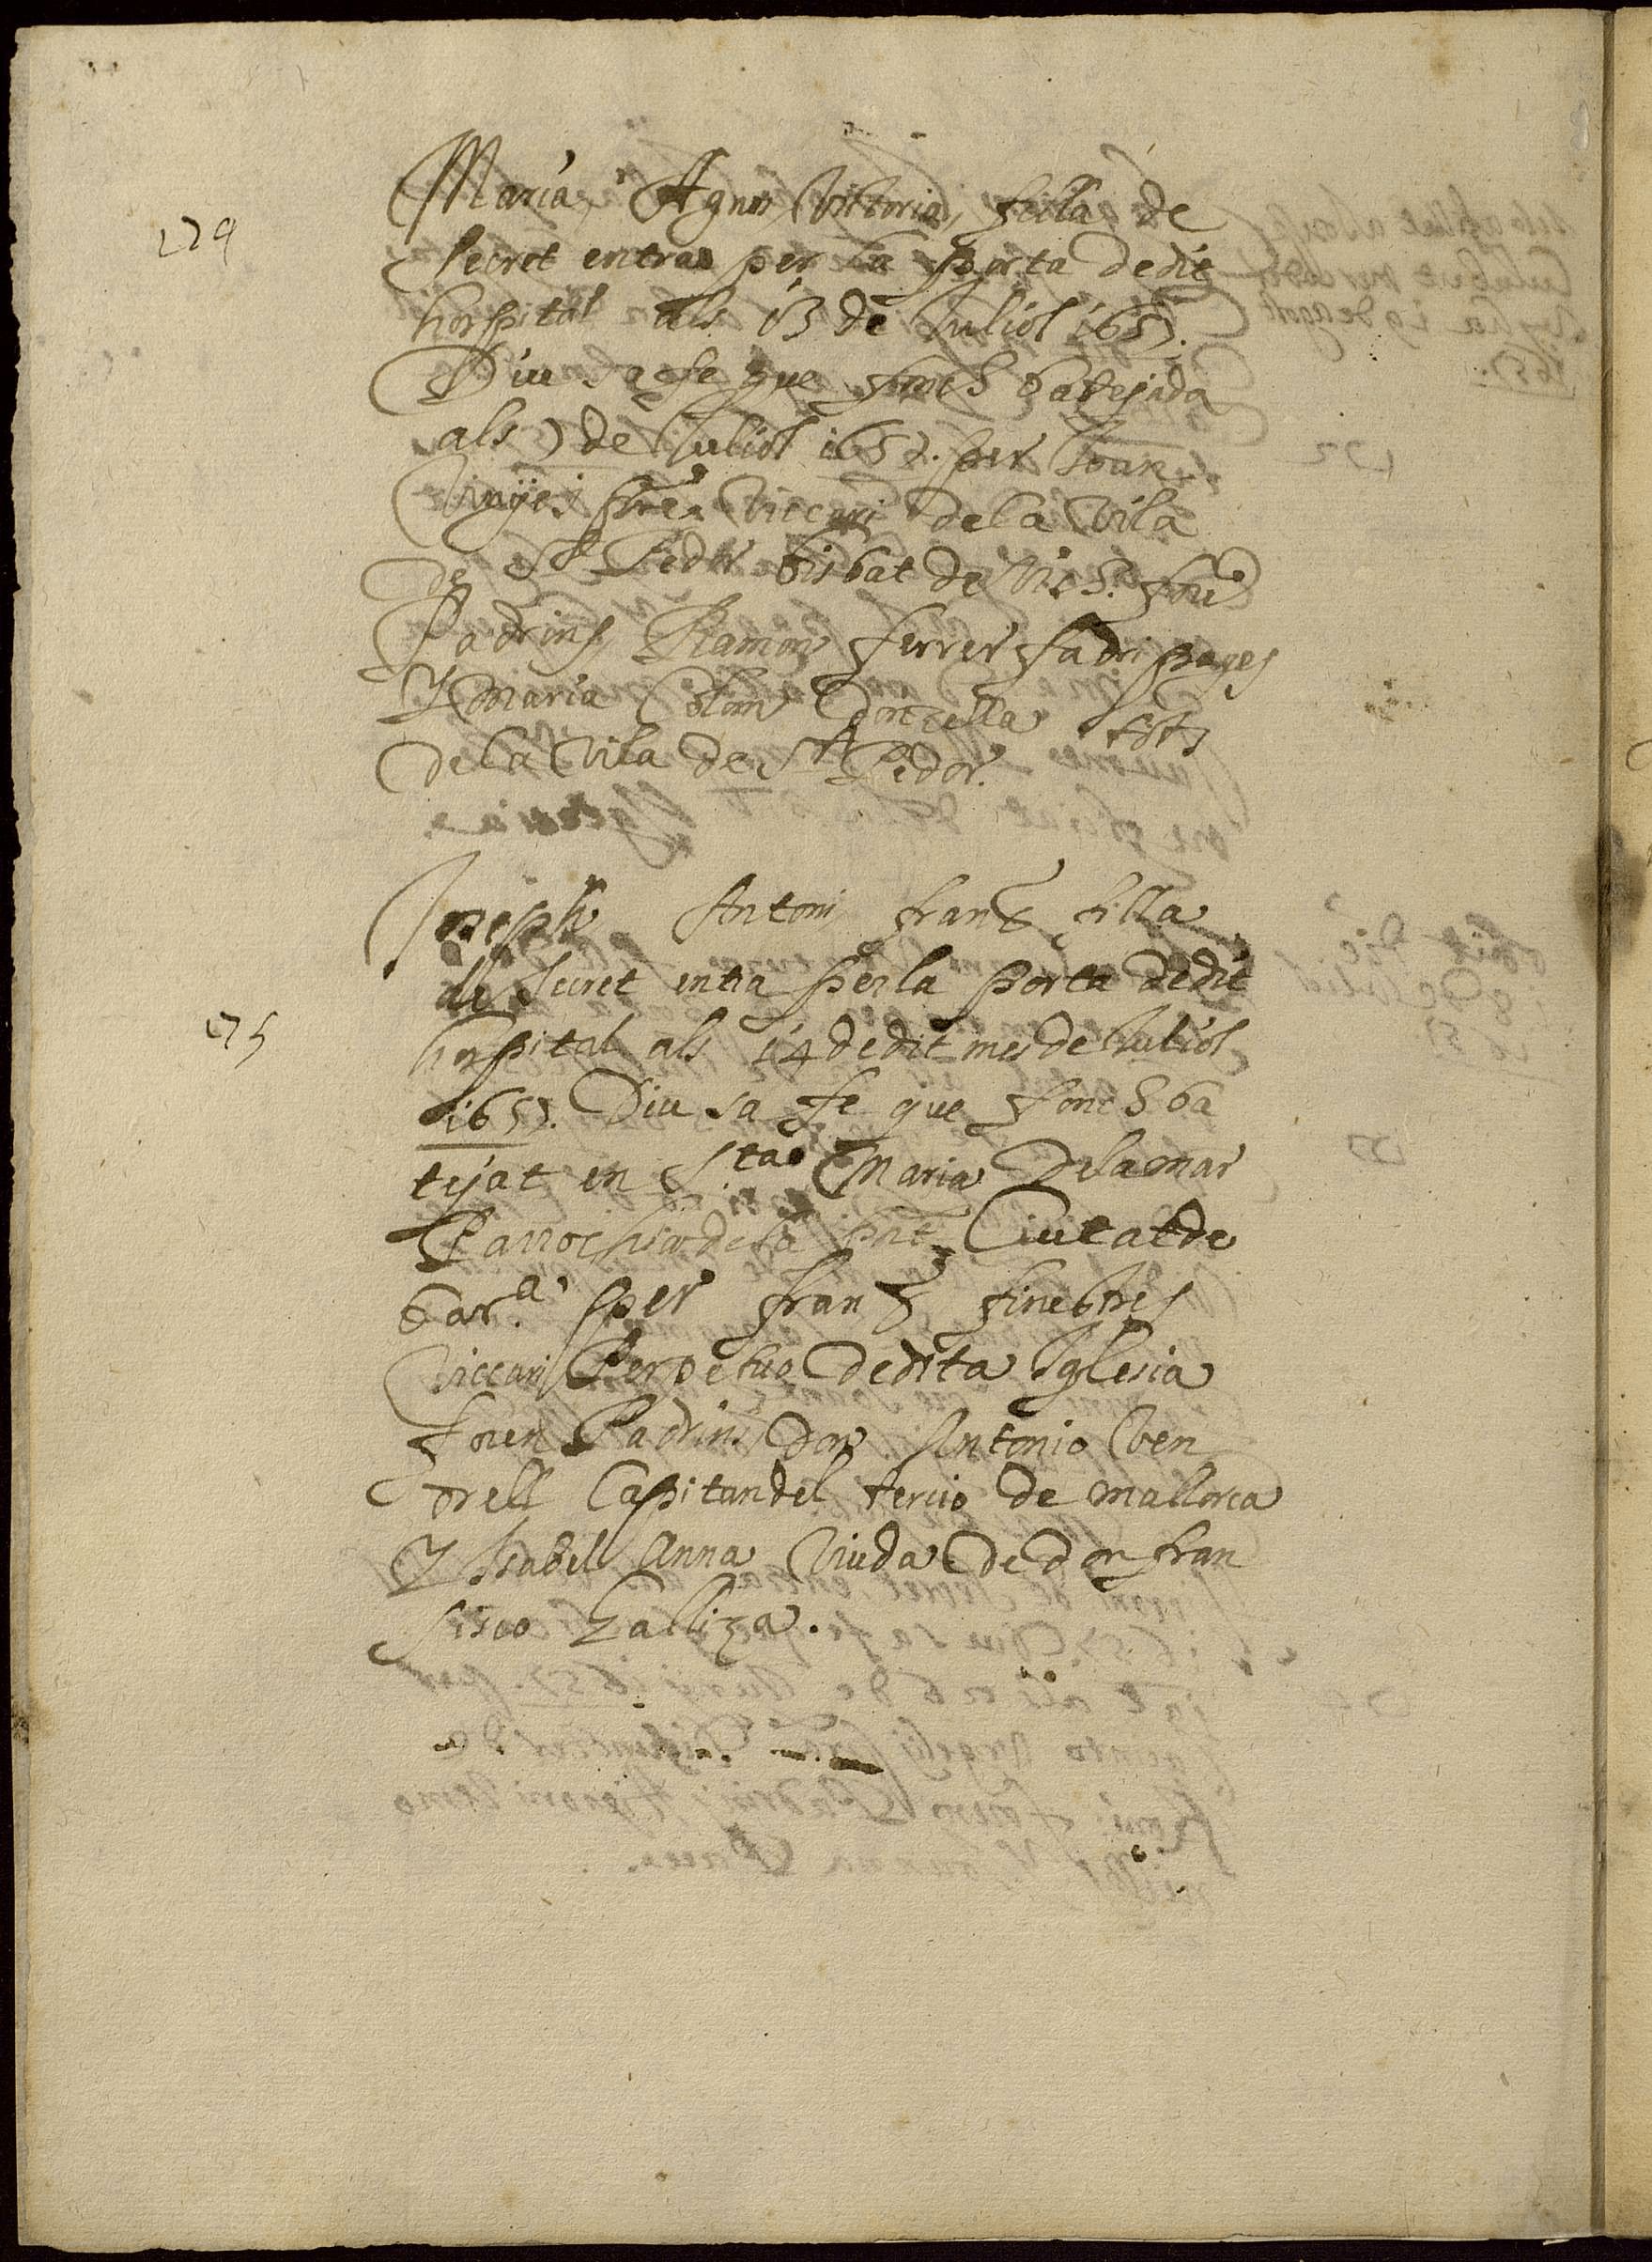 Maria, Agnes, Vittoria, filla de
174
secret entra per la porta de dit
hospital als 13 de Juliol 1657.
Diu sa fe que fonch batejada
als 7 de Juliol 1657. per Joan
Vinyes pre. Viccari de la Vila
de St. Pedor bisbat de Vich. foré
Padrins Ramon ferrer fadri pages
Y Maria Colom Donzella tots
de la Vila de St Pedor.
Joseph Antoni franch filla
de secret entra per la porta de dit
175
hospital als 14 de dit mes de Juliol
1657. Diu sa fe que fonch ba
tejat en S.ta Maria de la mar
Parrochia de la pnt Ciutat de
Bar.a per franch finestres
Viccari Perpetuo de dita Iglesia
foren Padrins Don Antonio Ven
drell Capitan del tercio de mallorca
Y Isabel Anna Viuda de don fran
sisco Calliza.